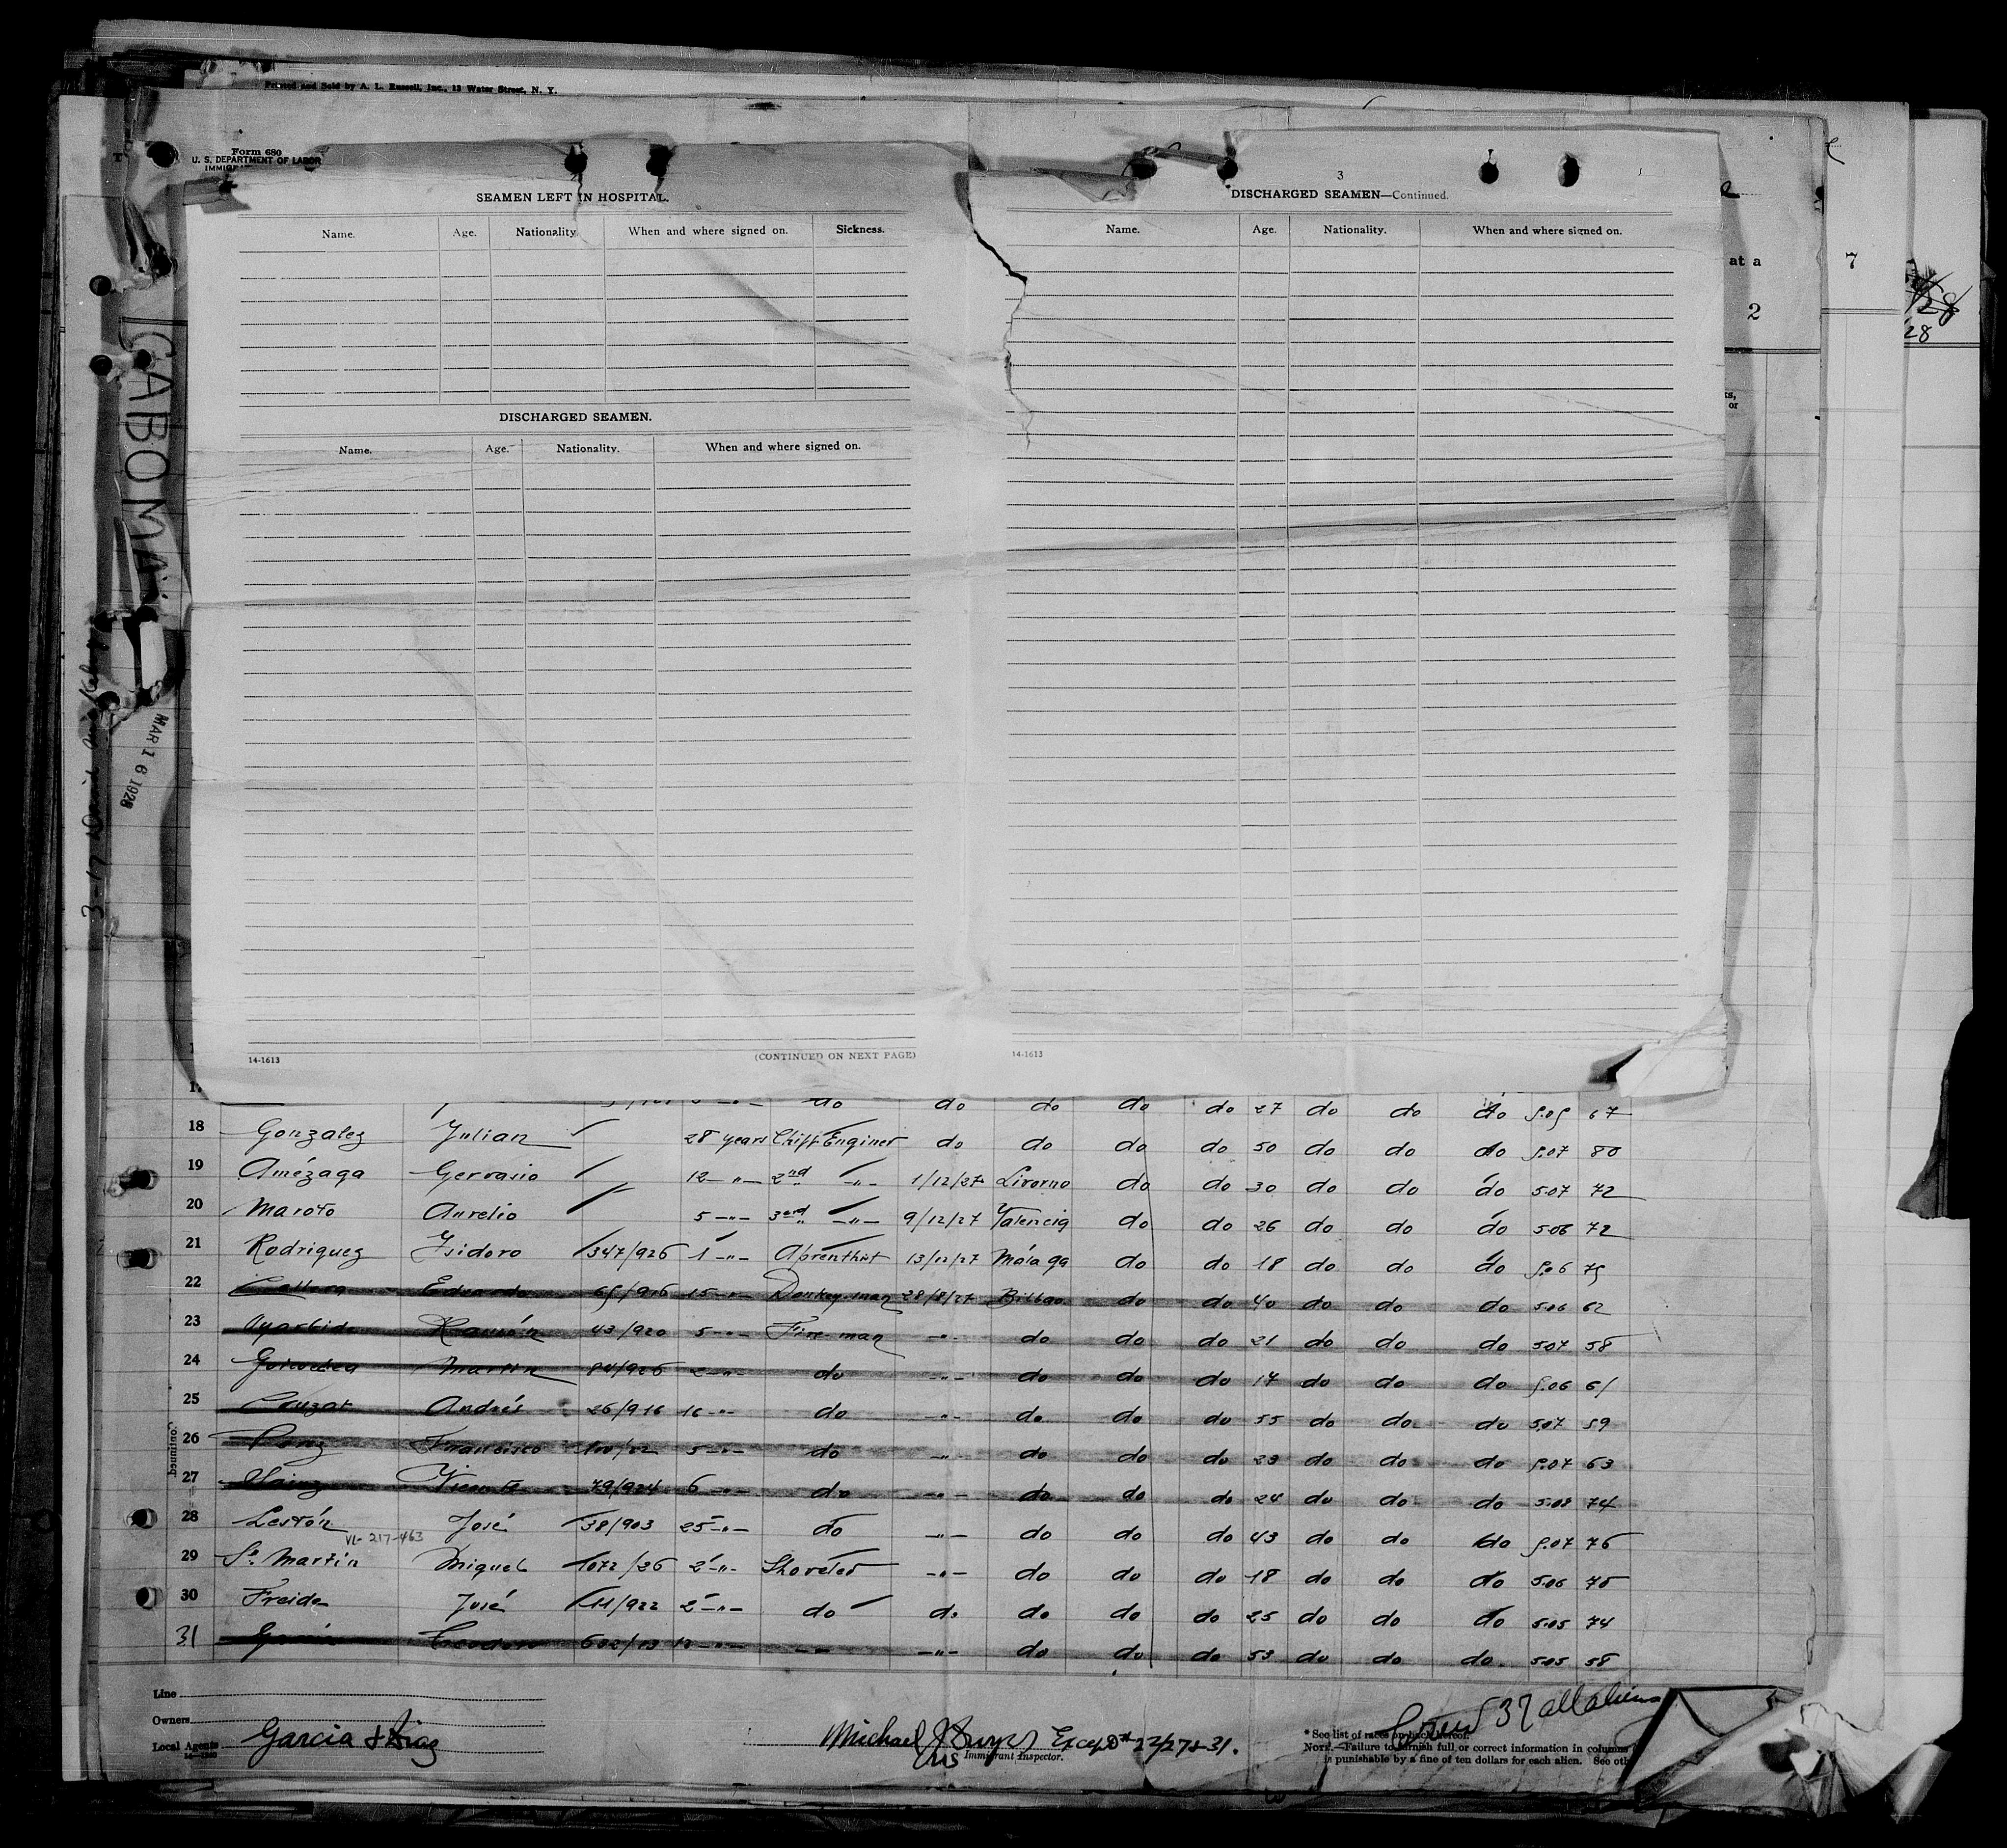 Printed and Sold by A. L. Russell, Inc., 13 Water Street, N. Y.
Form 680
U. S. DEPARTMENT OF LABOR
SEAMEN LEFT IN HOSPITAL.
Name. Age. Nationality. When and where signed on. Sickness.
DISCHARGED SEAMEN.
Name. Age. Nationality. When and where signed on.
14-1613 (CONTINUED ON NEXT PAGE)
3
DISCHARGED SEAMEN—Continued.
Name. Age. Nationality. When and where signed on.
14-1613
at a
2
7
28
28
CABO MA
MAR 16 1928
do do do do do 27 do do do 5.05 67
18 Gonzalez Julian 28 years Chiff Enginer do do do do 50 do do do 5.07 80
19 Amézaga Gervasio 12 -"- 2nd -"- 1/12/27 Livorno do do 30 do do do 5.07 72
20 Maroto Aurelio 5 -"- 3erd -"- 9/12/27 Valencia do do 26 do do do 5.06 72
21 Rodriguez Ysidoro 347/926 1 -"- Aprenthist 13/12/27 Málaga do do 18 do do do 5.06 75
22 Eduardo 65/926 15 -"- Donkey-man 28/8/27 Bilbao do do 40 do do do 5.06 62
23 Ramón 43/920 5 -"- Fire-man -"- do do do 21 do do do 5.07 58
24 Martin 84/926 2 -"- do -"- do do do 17 do do do 5.06 61
25 Andrés 26/916 16 -"- do -"- do do do 55 do do do 5.07 59
26 Francisco 5 -"- do -"- do do do 23 do do do 5.07 63
27 Vicente 79/924 6 -"- do -"- do do do 24 do do do 5.08 74
28 Lestón José 38/903 25 -"- do -"- do do do 43 do do do 5.07 76
VL- 217-463
29 Sn. Martin Miguel 1072/26 2 -"- Shoveled -"- do do do 18 do do do 5.06 70
30 Freide José 11/922 2 -"- do do do do do 25 do do do 5.05 74
31 Teodoro 682/13 12 -"- -"- -"- do do do 53 do do do 5.05 58
Line
Owners
Local Agents Garcia & Diaz
Michael Except 22/27 & 31.
Immigrant Inspector.
Crew 37 all aliens
* See list of races on back hereof.
NOTE.—Failure to furnish full or correct information in columns
is punishable by a fine of ten dollars for each alien. See